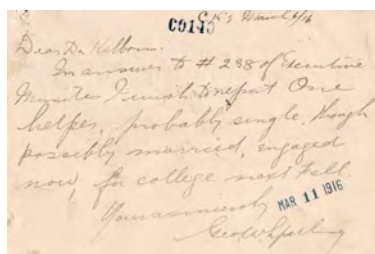 C0145
March 6/16
Dear Dr. Kilborn.
In answer to # 238 of Executive
Minutes I wish to report One
helper, probably single, though
possibly married, engaged
now, for college next Fall.
Yours sincerely
MAR 11 1916
Geo. W. Sparling